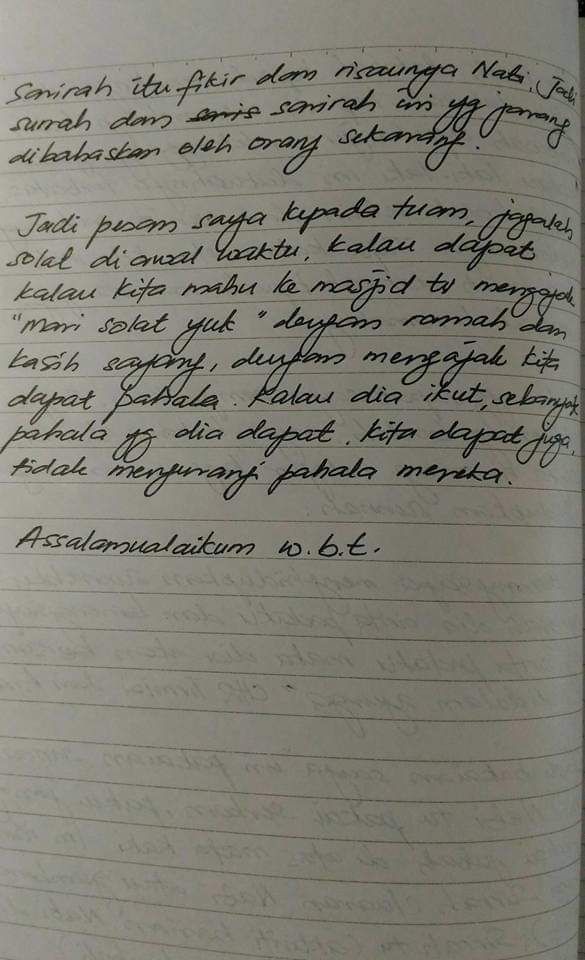 Sarirah itu fikir dan risaunya Nabi. Jadi
surrah dan saris sarirah ini yg jarang
dibahaskan oleh orang sekarang.
Jadi pesan saya kepada tuan, jagalah
solat di awal waktu. Kalau dapat
kalau kita mahu ke masjid tu mengajak
"mari solat yuk" dengan ramah dan
kasih sayang, dengan mengajak kita
dapat pahala. Kalau dia ikut, sebanyak
pahala yg dia dapat, kita dapat juga,
tidak mengurangi pahala mereka.
Assalamualaikum w.b.t.